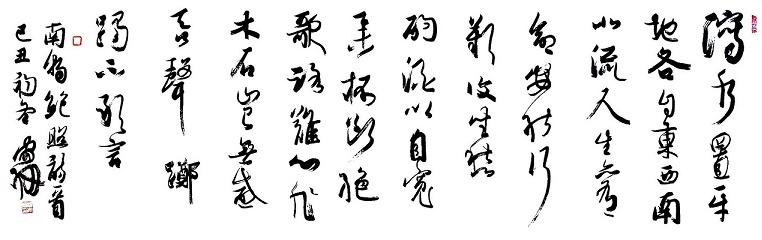 瀉水置平
地各自東西南
北流人生亦有
命安能行
歎復坐愁
酌酒以自寬
舉杯斷絕
歌路難心非
木石豈無感
吞聲躑
躅不敢言
南朝鮑照詩一首
己丑初冬